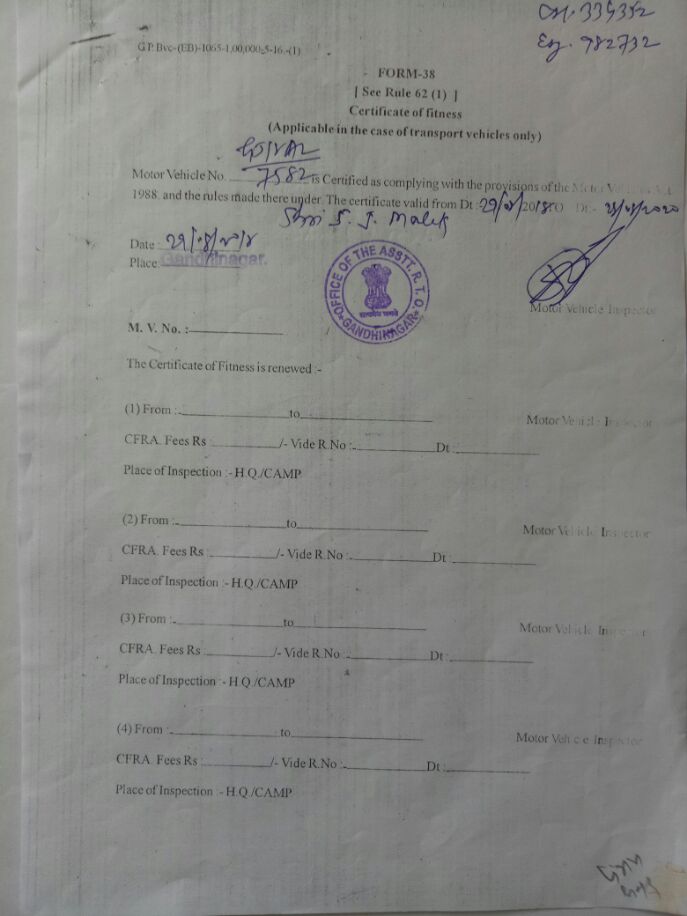 CH. 339352
Eg. 982732
G.P. Bvc-(EB)-1065-1,00,000-5-16-(1)
FORM-38
[ See Rule 62 (1) ]
Certificate of fitness
(Applicable in the case of transport vehicles only)
Motor Vehicle No. 7582 is Certified as complying with the provisions of the Motor Vehicles Act
1988. and the rules made there under. The certificate valid from Dt :
Shri S. J. Malek
Date :
Place Gandhinagar.
OFFICE OF THE ASSTT. R. T. O
GANDHINAGAR
Motor Vehicle Inspector
M. V. No. :-
The Certificate of Fitness is renewed :-
(1) From :- to
Motor Vehicle Inspector
CFRA. Fees Rs /- Vide R.No :- Dt :
Place of Inspection :- H.Q./CAMP
(2) From :- to
Motor Vehicle Inspector
CFRA. Fees Rs : /- Vide R.No :- Dt :
Place of Inspection :- H.Q./CAMP
(3) From :- to
Motor Vehicle Inspector
CFRA. Fees Rs : /- Vide R.No :- Dt :
Place of Inspection :- H.Q./CAMP
(4) From :- to
Motor Vehicle Inspector
CFRA. Fees Rs : /- Vide R.No :- Dt :
Place of Inspection :- H.Q./CAMP